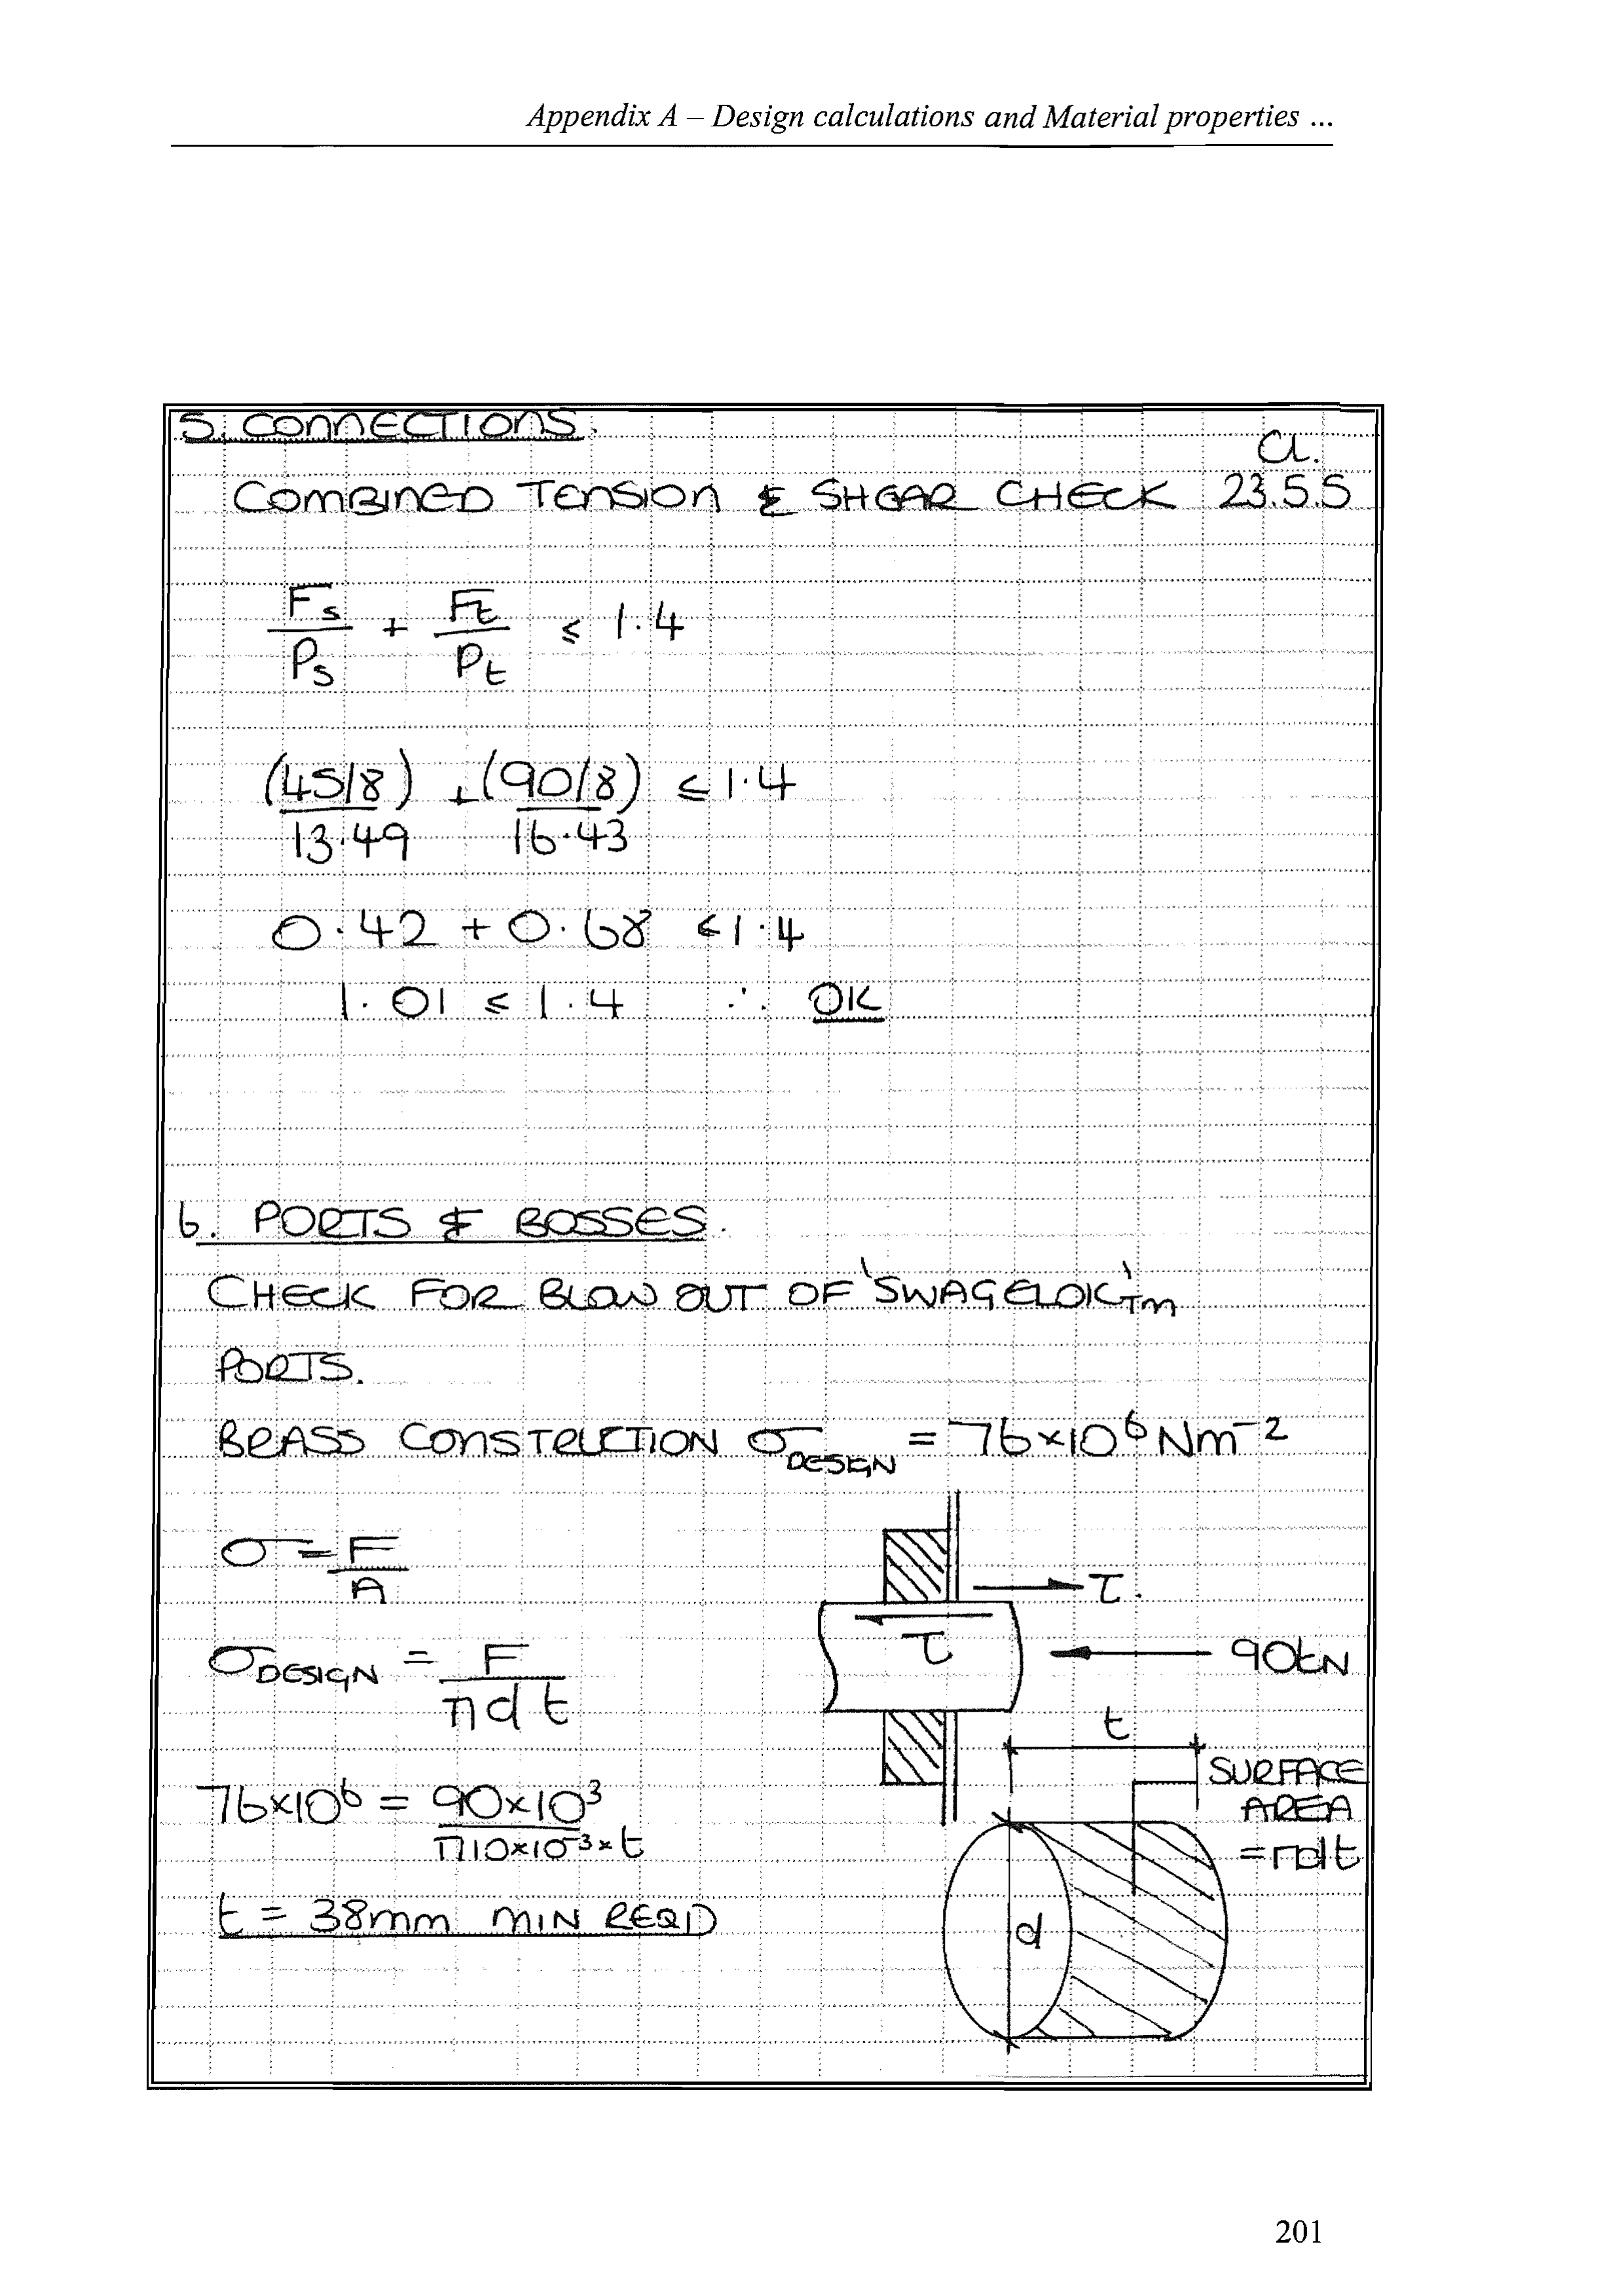 Appendix A – Design calculations and Material properties ...
5. CONNECTIONS.
Cl.
COMBINED TENSION & SHEAR CHECK 23.5.5
Fs/Ps + Ft/Pt ≤ 1.4
(45/8)/13.49 + (90/8)/16.43 ≤ 1.4
0.42 + 0.68 ≤ 1.4
1.01 ≤ 1.4 ∴ OK
6. PORTS & BOSSES.
CHECK FOR BLOW OUT OF 'SWAGELOK'TM
PORTS.
BRASS CONSTRUCTION σDESIGN = 76×10⁶ Nm⁻²
σ = F/A
τ.
τ
σDESIGN = F/πdt
90kN
t
76×10⁶ = 90×10³/π10×10⁻³×t
SURFACE
AREA
= πdt
t = 38mm MIN REQD
d
201